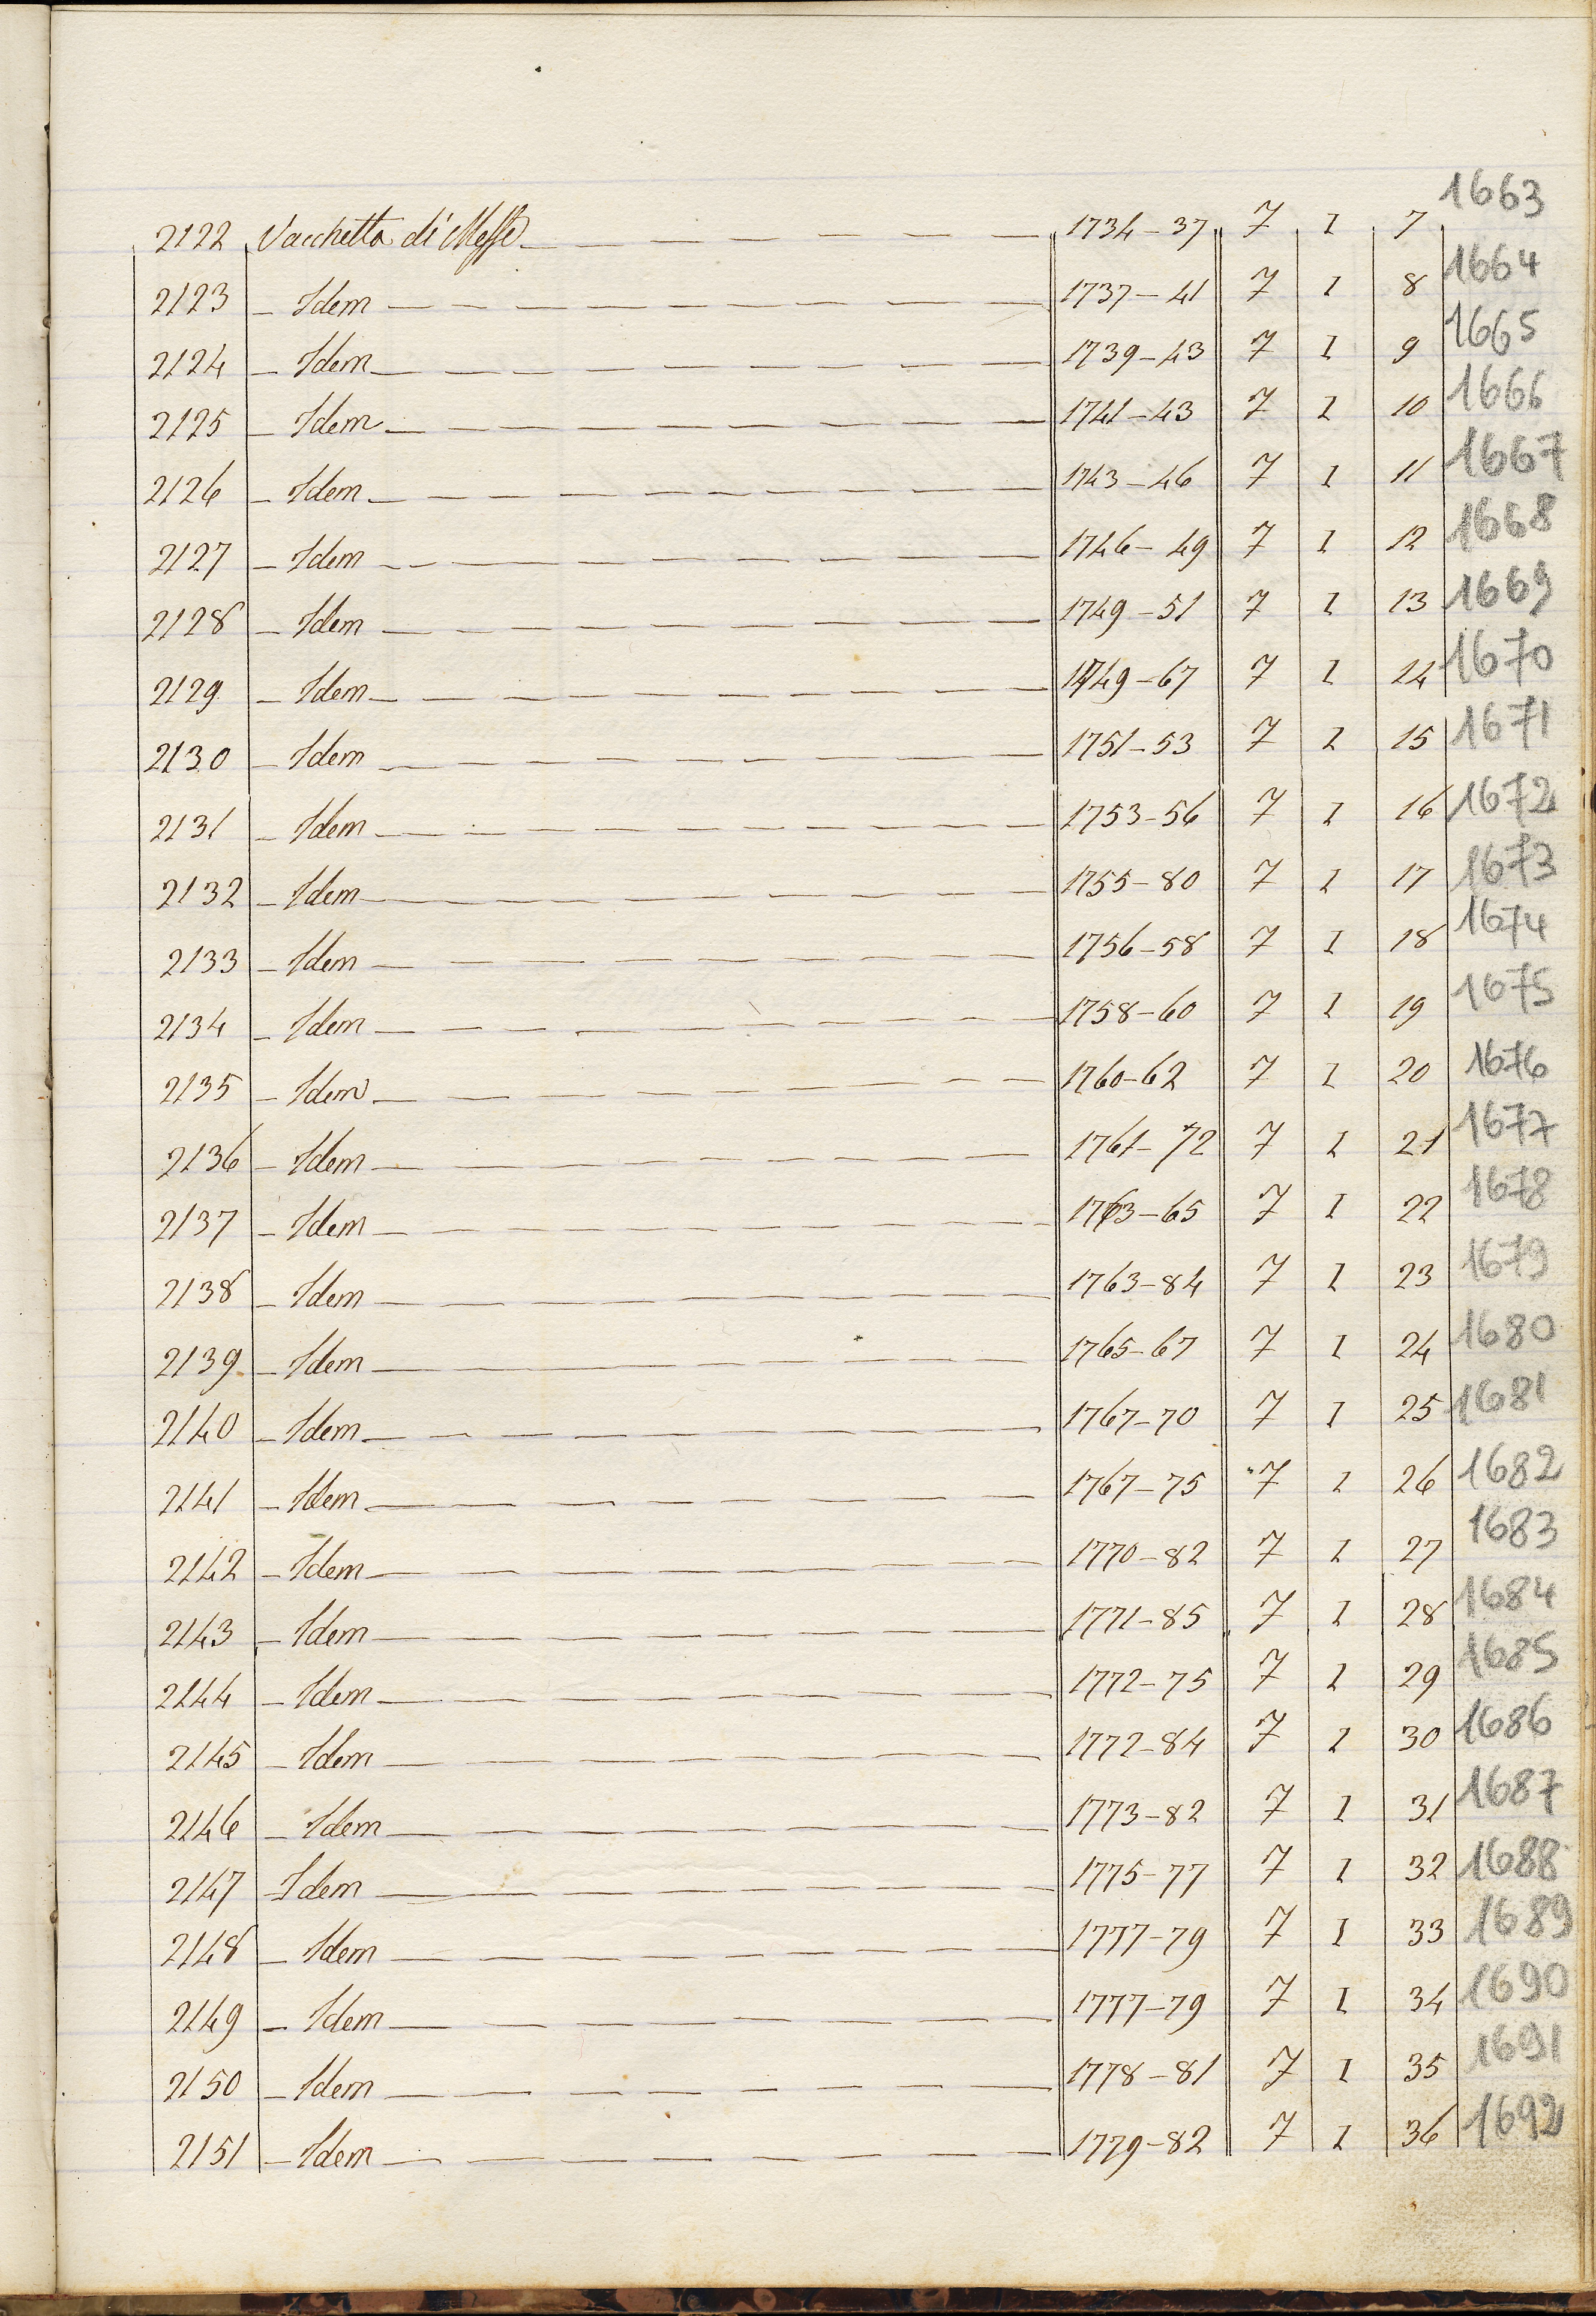 2122 Vacchetta di Messe 1734-37 7 I 7 1663
2123 Idem 1737-41 7 I 8 1664
2124 Idem 1739-43 7 I 9 1665
2125 Idem 1741-43 7 I 10 1666
2126 Idem 1743-46 7 I 11 1667
2127 Idem 1746-49 7 I 12 1668
2128 Idem 1749-51 7 I 13 1669
2129 Idem 1749-67 7 I 14 1670
2130 Idem 1751-53 7 I 15 1671
2131 Idem 1753-56 7 I 16 1672
2132 Idem 1755-80 7 I 17 1673
2133 Idem 1756-58 7 I 18 1674
2134 Idem 1758-60 7 I 19 1675
2135 Idem 1760-62 7 I 20 1676
2136 Idem 1761-72 7 I 21 1677
2137 Idem 1763-65 7 I 22 1678
2138 Idem 1763-84 7 I 23 1679
2139 Idem 1765-67 7 I 24 1680
2140 Idem 1767-70 7 I 25 1681
2141 Idem 1767-75 7 I 26 1682
2142 Idem 1770-82 7 I 27 1683
2143 Idem 1771-85 7 I 28 1684
2144 Idem 1772-75 7 I 29 1685
2145 Idem 1772-84 7 I 30 1686
2146 Idem 1773-82 7 I 31 1687
2147 Idem 1775-77 7 I 32 1688
2148 Idem 1777-79 7 I 33 1689
2149 Idem 1777-79 7 I 34 1690
2150 Idem 1778-81 7 I 35 1691
2151 Idem 1779-82 7 I 36 1692